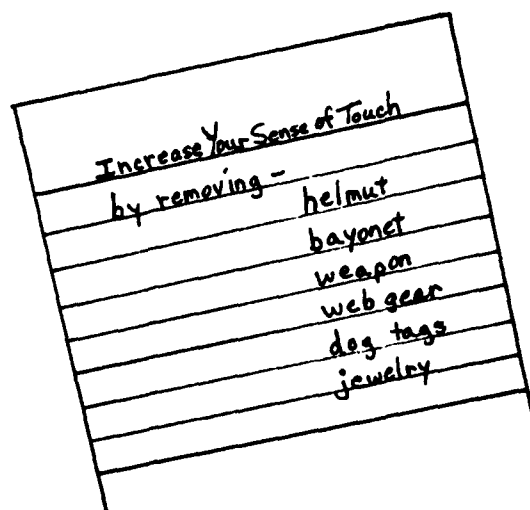 Increase Your Sense of Touch
by removing -
helmut
bayonet
weapon
web gear
dog tags
jewelry